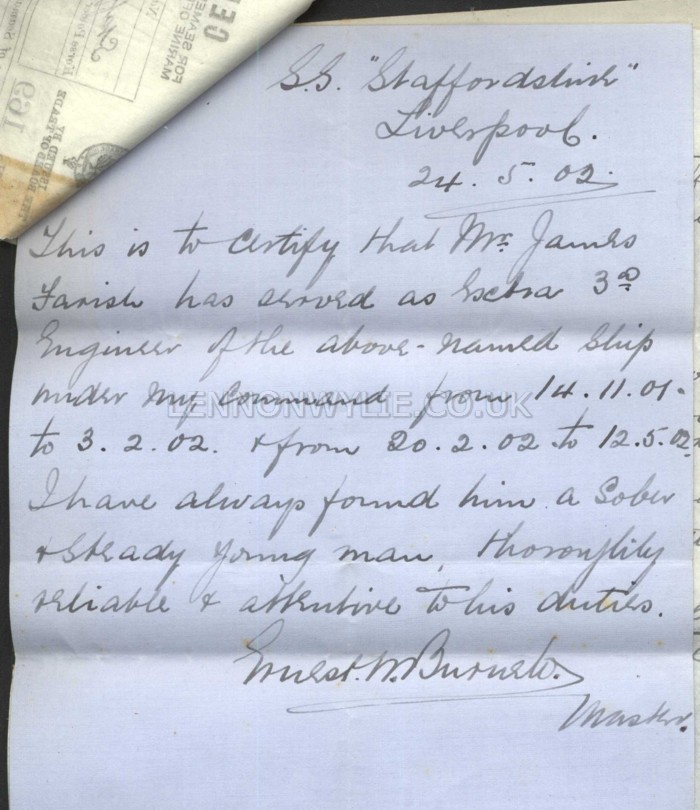 S.S. "Staffordshire"
Liverpool.
24. 5. 02.
This is to certify that Mr. James
Farish has served as Extra 3rd
Engineer of the above-named Ship
under my Command from 14.11.01.
to 3.2.02. & from 20.2.02 to 12.5.02
I have always found him a Sober
& Steady young man, thoroughly
reliable & attentive to his duties.
Ernest. W. Burnett.
Master.
LENNONWYLIE.CO.UK
MARINE OF
FOR SEAMEN
169
ISSUED BY
BOARD OF TRADE